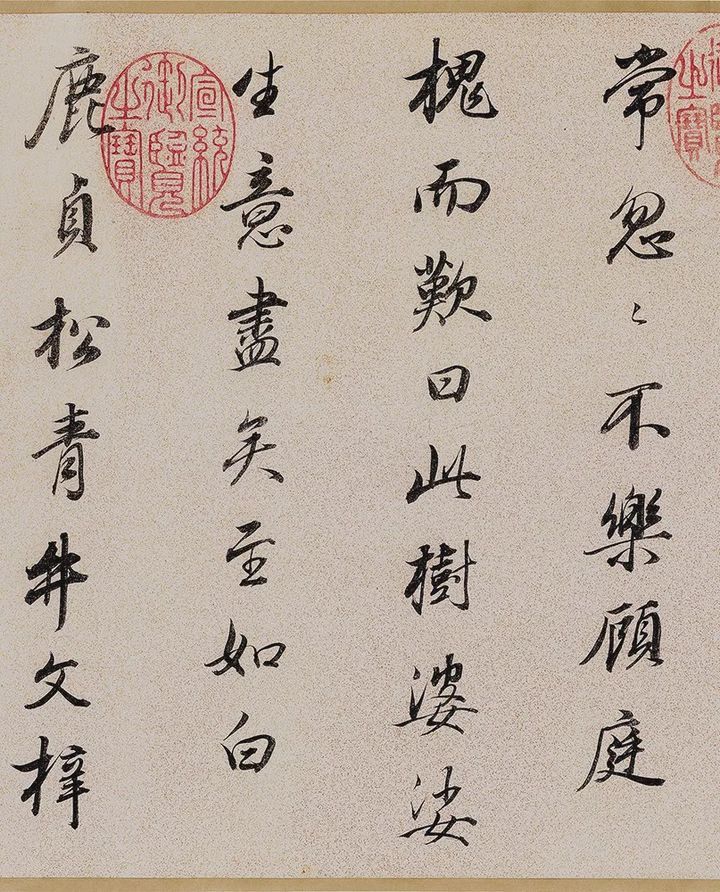 常忽〻不樂顧庭
槐而歎曰此樹婆娑
生意盡矣至如白
鹿貞松青牛文梓
宣統御覽之寶
之寶